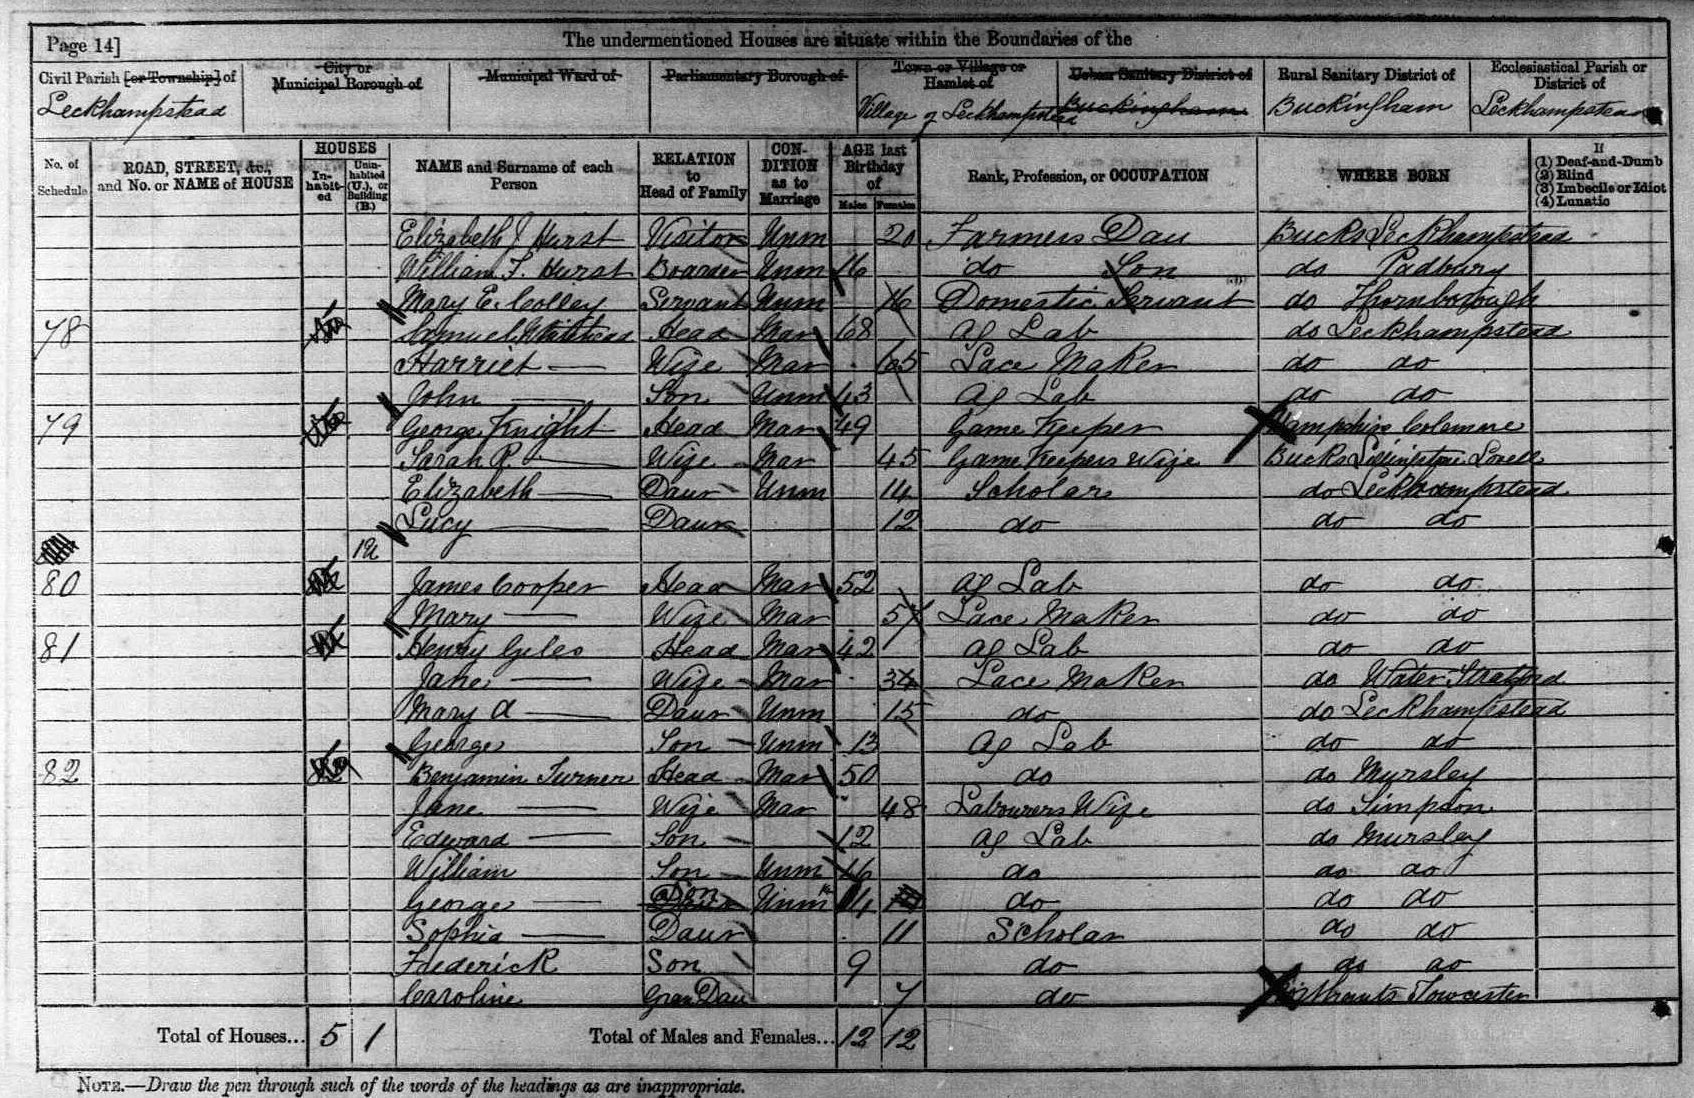 Page 14]
The undermentioned Houses are situate within the Boundaries of the
Civil Parish [or Township] of
City or Municipal Borough of
Municipal Ward of
Parliamentary Borough of
Town or Village or Hamlet of
Urban Sanitary District of
Rural Sanitary District of
Ecclesiastical Parish or District of
Leckhampstead
Village of Leckhampstead
Buckingham
Buckingham
Leckhampstead
No. of Schedule
ROAD, STREET, &c., and No. or NAME of HOUSE
HOUSES
In-habit-ed
Unin-habited (U.), or Building (B.)
NAME and Surname of each Person
RELATION to Head of Family
CON-DITION as to Marriage
AGE last Birthday of
Males
Females
Rank, Profession, or OCCUPATION
WHERE BORN
If
(1) Deaf-and-Dumb
(2) Blind
(3) Imbecile or Idiot
(4) Lunatic
Elizabeth J Hurst Visitor Unm 20 Farmers Dau Bucks Leckhampstead
William F. Hurst Boarder Unm 16 do Son do Padbury
Mary E. Colley Servant Unm 16 Domestic Servant do Thornborough
78 Samuel Whitehead Head Mar 68 Ag Lab do Leckhampstead
Harriet Wife Mar 65 Lace Maker do do
John Son Unm 43 Ag Lab do do
79 George Knight Head Mar 49 Game Keeper Hampshire Colemore
Sarah R. Wife Mar 45 Game Keepers Wife Bucks Lovell
Elizabeth Daur Unm 14 Scholar do Leckhampstead
Lucy Daur 12 do do do
1u
80 James Cooper Head Mar 52 Ag Lab do do
Mary Wife Mar 57 Lace Maker do do
81 Henry Giles Head Mar 42 Ag Lab do do
Jane Wife Mar 34 Lace Maker do Water Stratford
Mary A Daur Unm 15 do do Leckhampstead
George Son Unm 13 Ag Lab do do
82 Benjamin Turner Head Mar 50 do do Mursley
Jane Wife Mar 48 Labourers Wife do Simpson
Edward Son 12 Ag Lab do Mursley
William Son Unm 16 do do do
George Son Unm 14 do do do
Sophia Daur 11 Scholar do do
Frederick Son 9 do do do
Caroline Gran Dau 7 do Northants Towcester
Total of Houses... 5 1 Total of Males and Females... 12 12
NOTE.—Draw the pen through such of the words of the headings as are inappropriate.